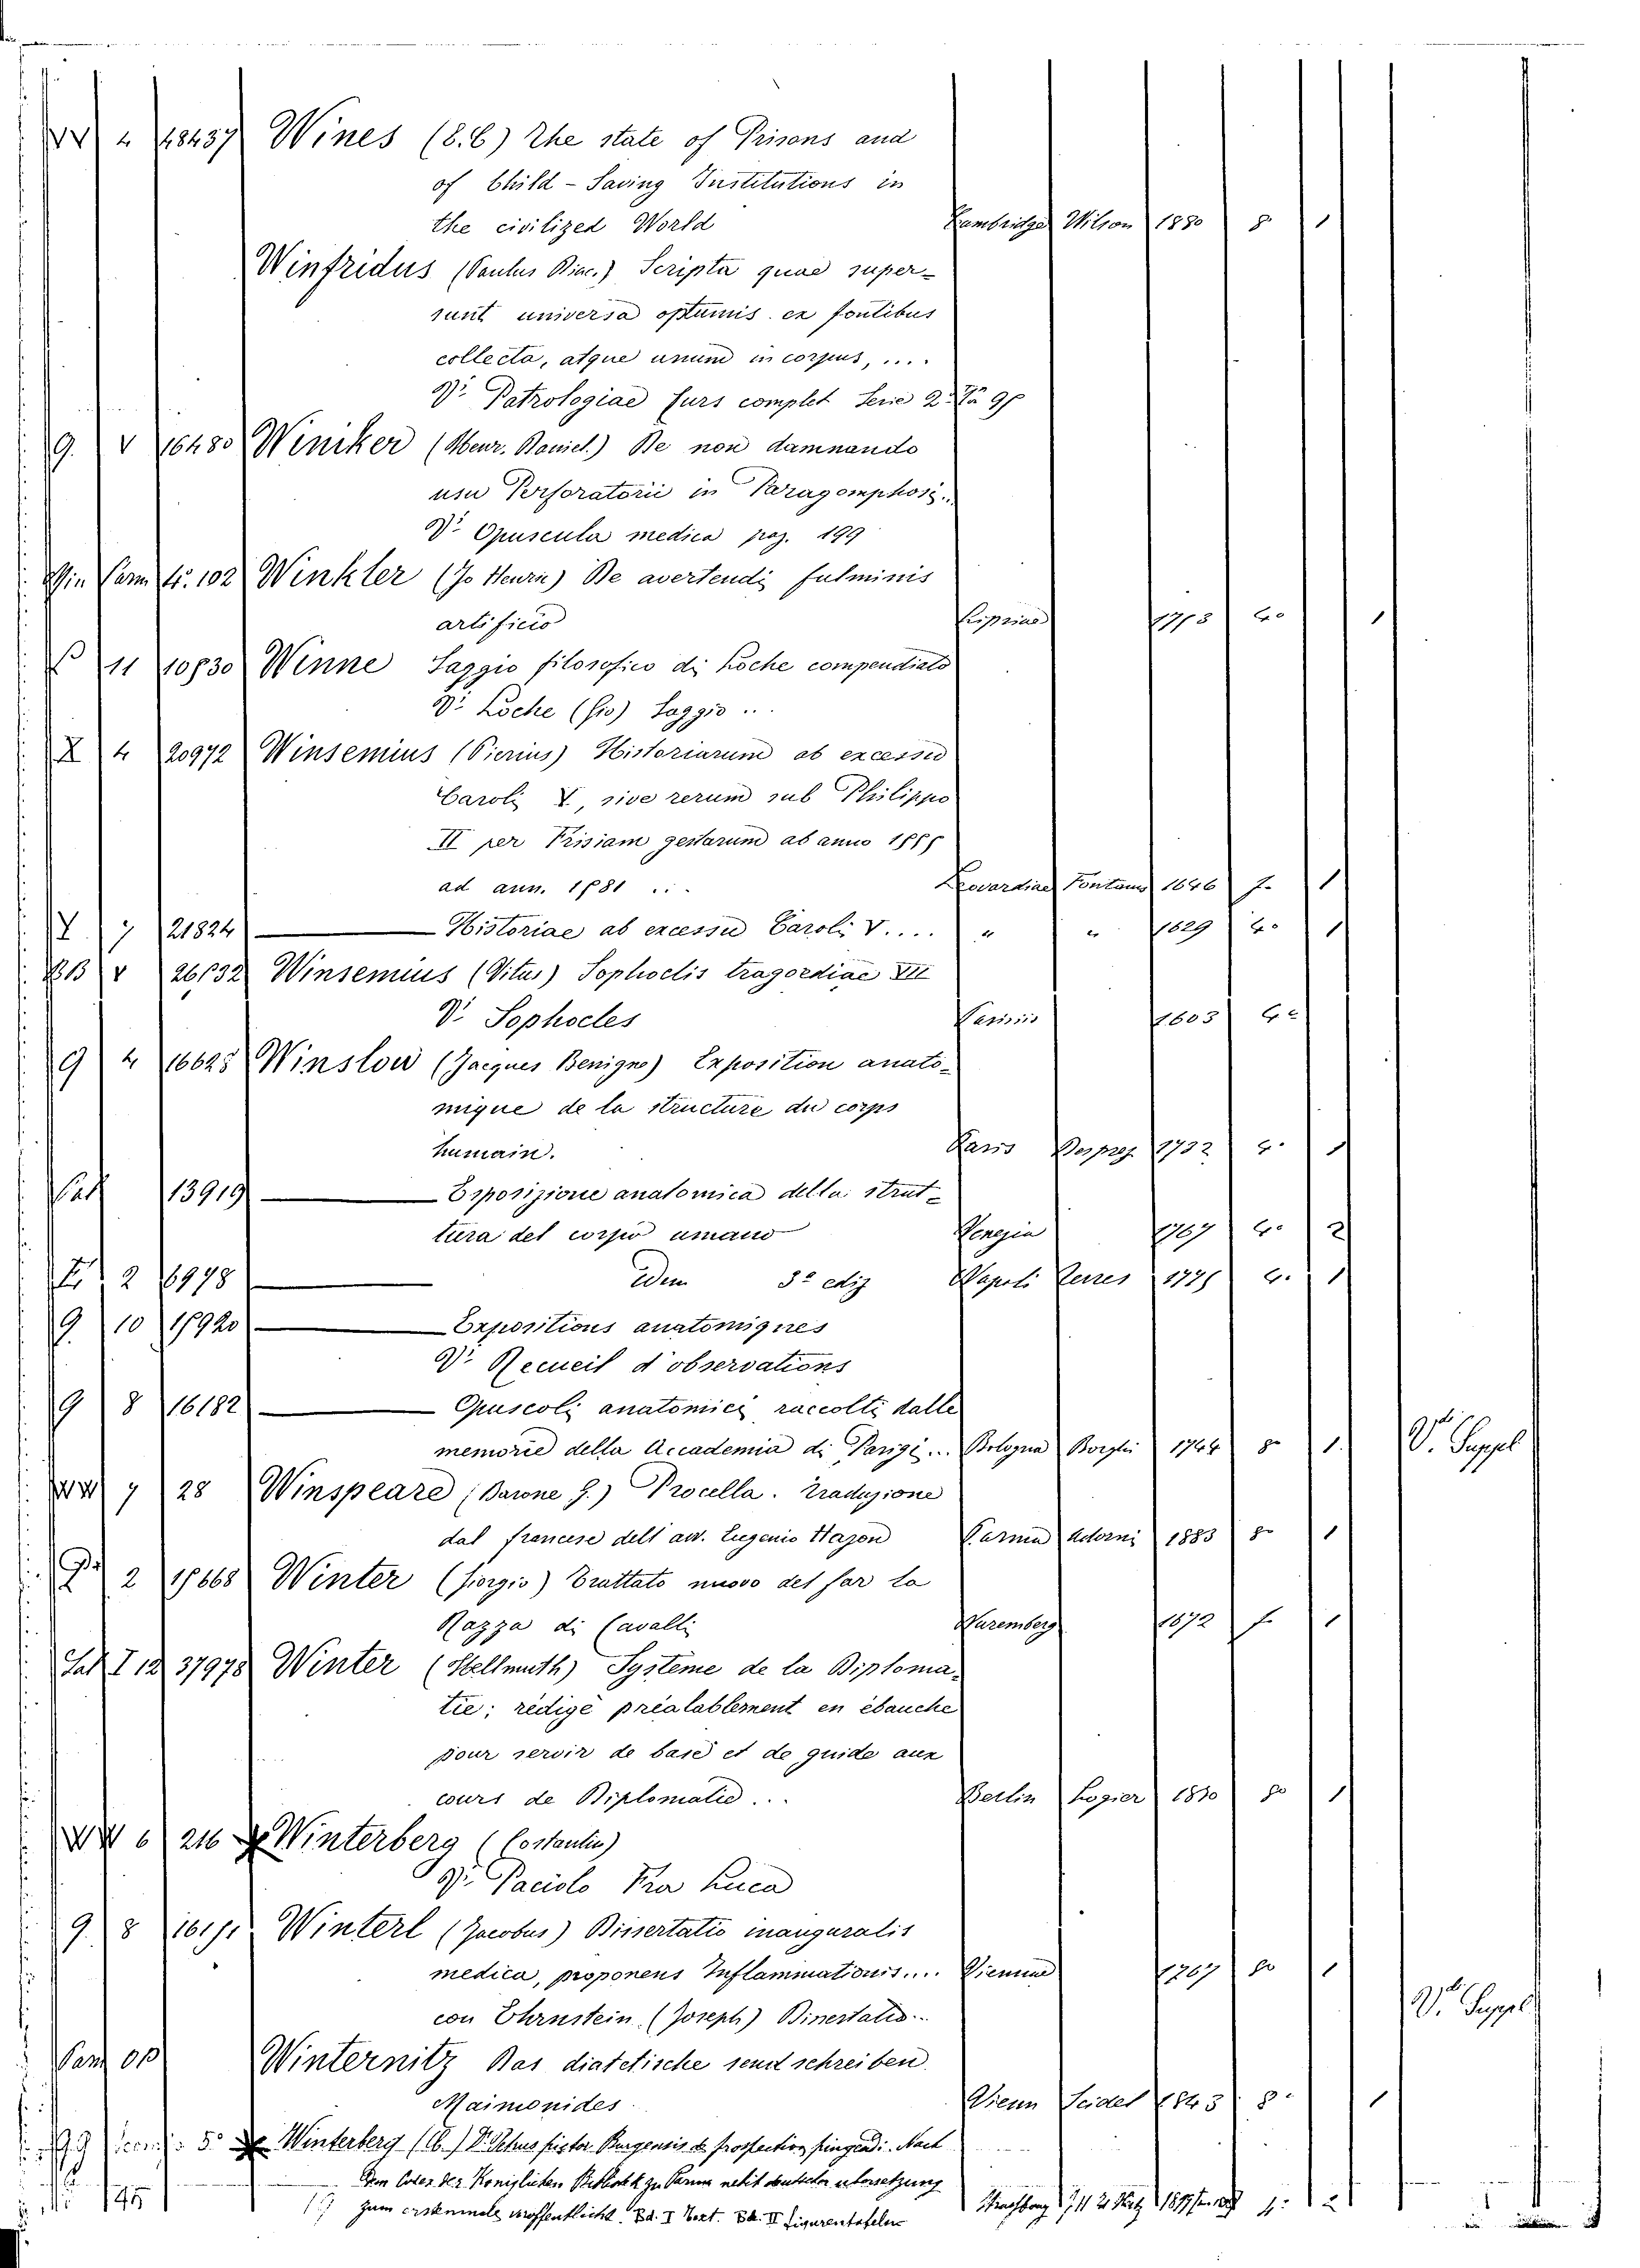 W 4 18437 Wines (E.C) The state of Prisons and
of Child-Saving Institutions in
the civilized World Cambridge Wilson 1880 8° 1
Winfridus (Paulus Diac.) Scripta quae super-
sunt universa optumis ex fontibus
collecta, atque unum in corpus, ....
Vi. Patrologiae Curs complet Serie 2a 95
9. V 16480 Winiker (Henr. Daniel.) De non damnando
usu Perforatorii in Paragomphosi..
Vi. Opuscula medica pag. 199
102 Winkler (Jo Henric) De avertendi fulminis
artificio Lipsiae 4° 1
11 10830 Winne Saggio filosofico di Loche compendiato
Vi. Loche (Gio) Saggio ...
X 4 20972 Winsemius (Pierius) Historiarum ab excessu
Caroli V, sive rerum sub Philippo
II per Frisiam gestarum ab anno 1555
ad ann. 1581 ... Leovardiae Fontana 1646 f. 1
Y 7 21824 — Historiae ab excessu Caroli V.... " " 1629 4° 1
BB V 26532 Winsemius (Vitus) Sophoclis tragoediae VII
Vi. Sophocles Parisiis 1603 4°
9 4 16625 Winslow (Jacques Benigne) Exposition anato-
mique de la structure du corps
humain. Paris Desprez 1732 4° 1
13919 — Esposizione anatomica della strut-
tura del corpo umano Venezia 1767 4° 2
2 6978 — Idem 3a ediz Napoli 1775 4° 1
9. 10 15920 — Expositions anatomiques
Vi. Recueil d'observations
9 8 16182 — Opuscoli anatomici raccolti dalle
memorie della Accademia di Parigi... Bologna 1744 8° 1. Vi. Suppl
W 7 28 Winspeare (Barone G.) Procella. Traduzione
dal francese dell avv. Eugenio Hazon Parma Adorni 1883 8° 1
2 15668 Winter (Giorgio) Trattato nuovo del far la
Razza di Cavalli Nuremberg 1672 f. 1
I 12 37978 Winter (Hellmuth) Système de la Diploma-
tie; rédigé préalablement en ébauche
pour servir de base et de guide aux
cours de Diplomatie... Berlin Logier 1830 8° 1
W 6 216 Winterberg (Costantin)
Vi. Paciolo Fra Luca
9. 8 Winterl (Jacobus) Dissertatio inauguralis
medica, proponens Inflammationis.... Viennae 1767 8° 1
con Ehrnstein (Joseph) Dissertatio... Vi. Suppl
Winternitz Das diatetische send schreiben
Maimonides Vienn Seidel 1843 8° 1
5° Winterberg (C.) Petrus pictor Burgensis de prospectiva pingendi. Nach
dem Codex der Königlichen Bibliothek zu Parma nebst deutscher übersetzung
zum erstenmale veröffentlicht. Bd. I Text. Bd. II Figurentafeln Strassburg 1899 4° 2